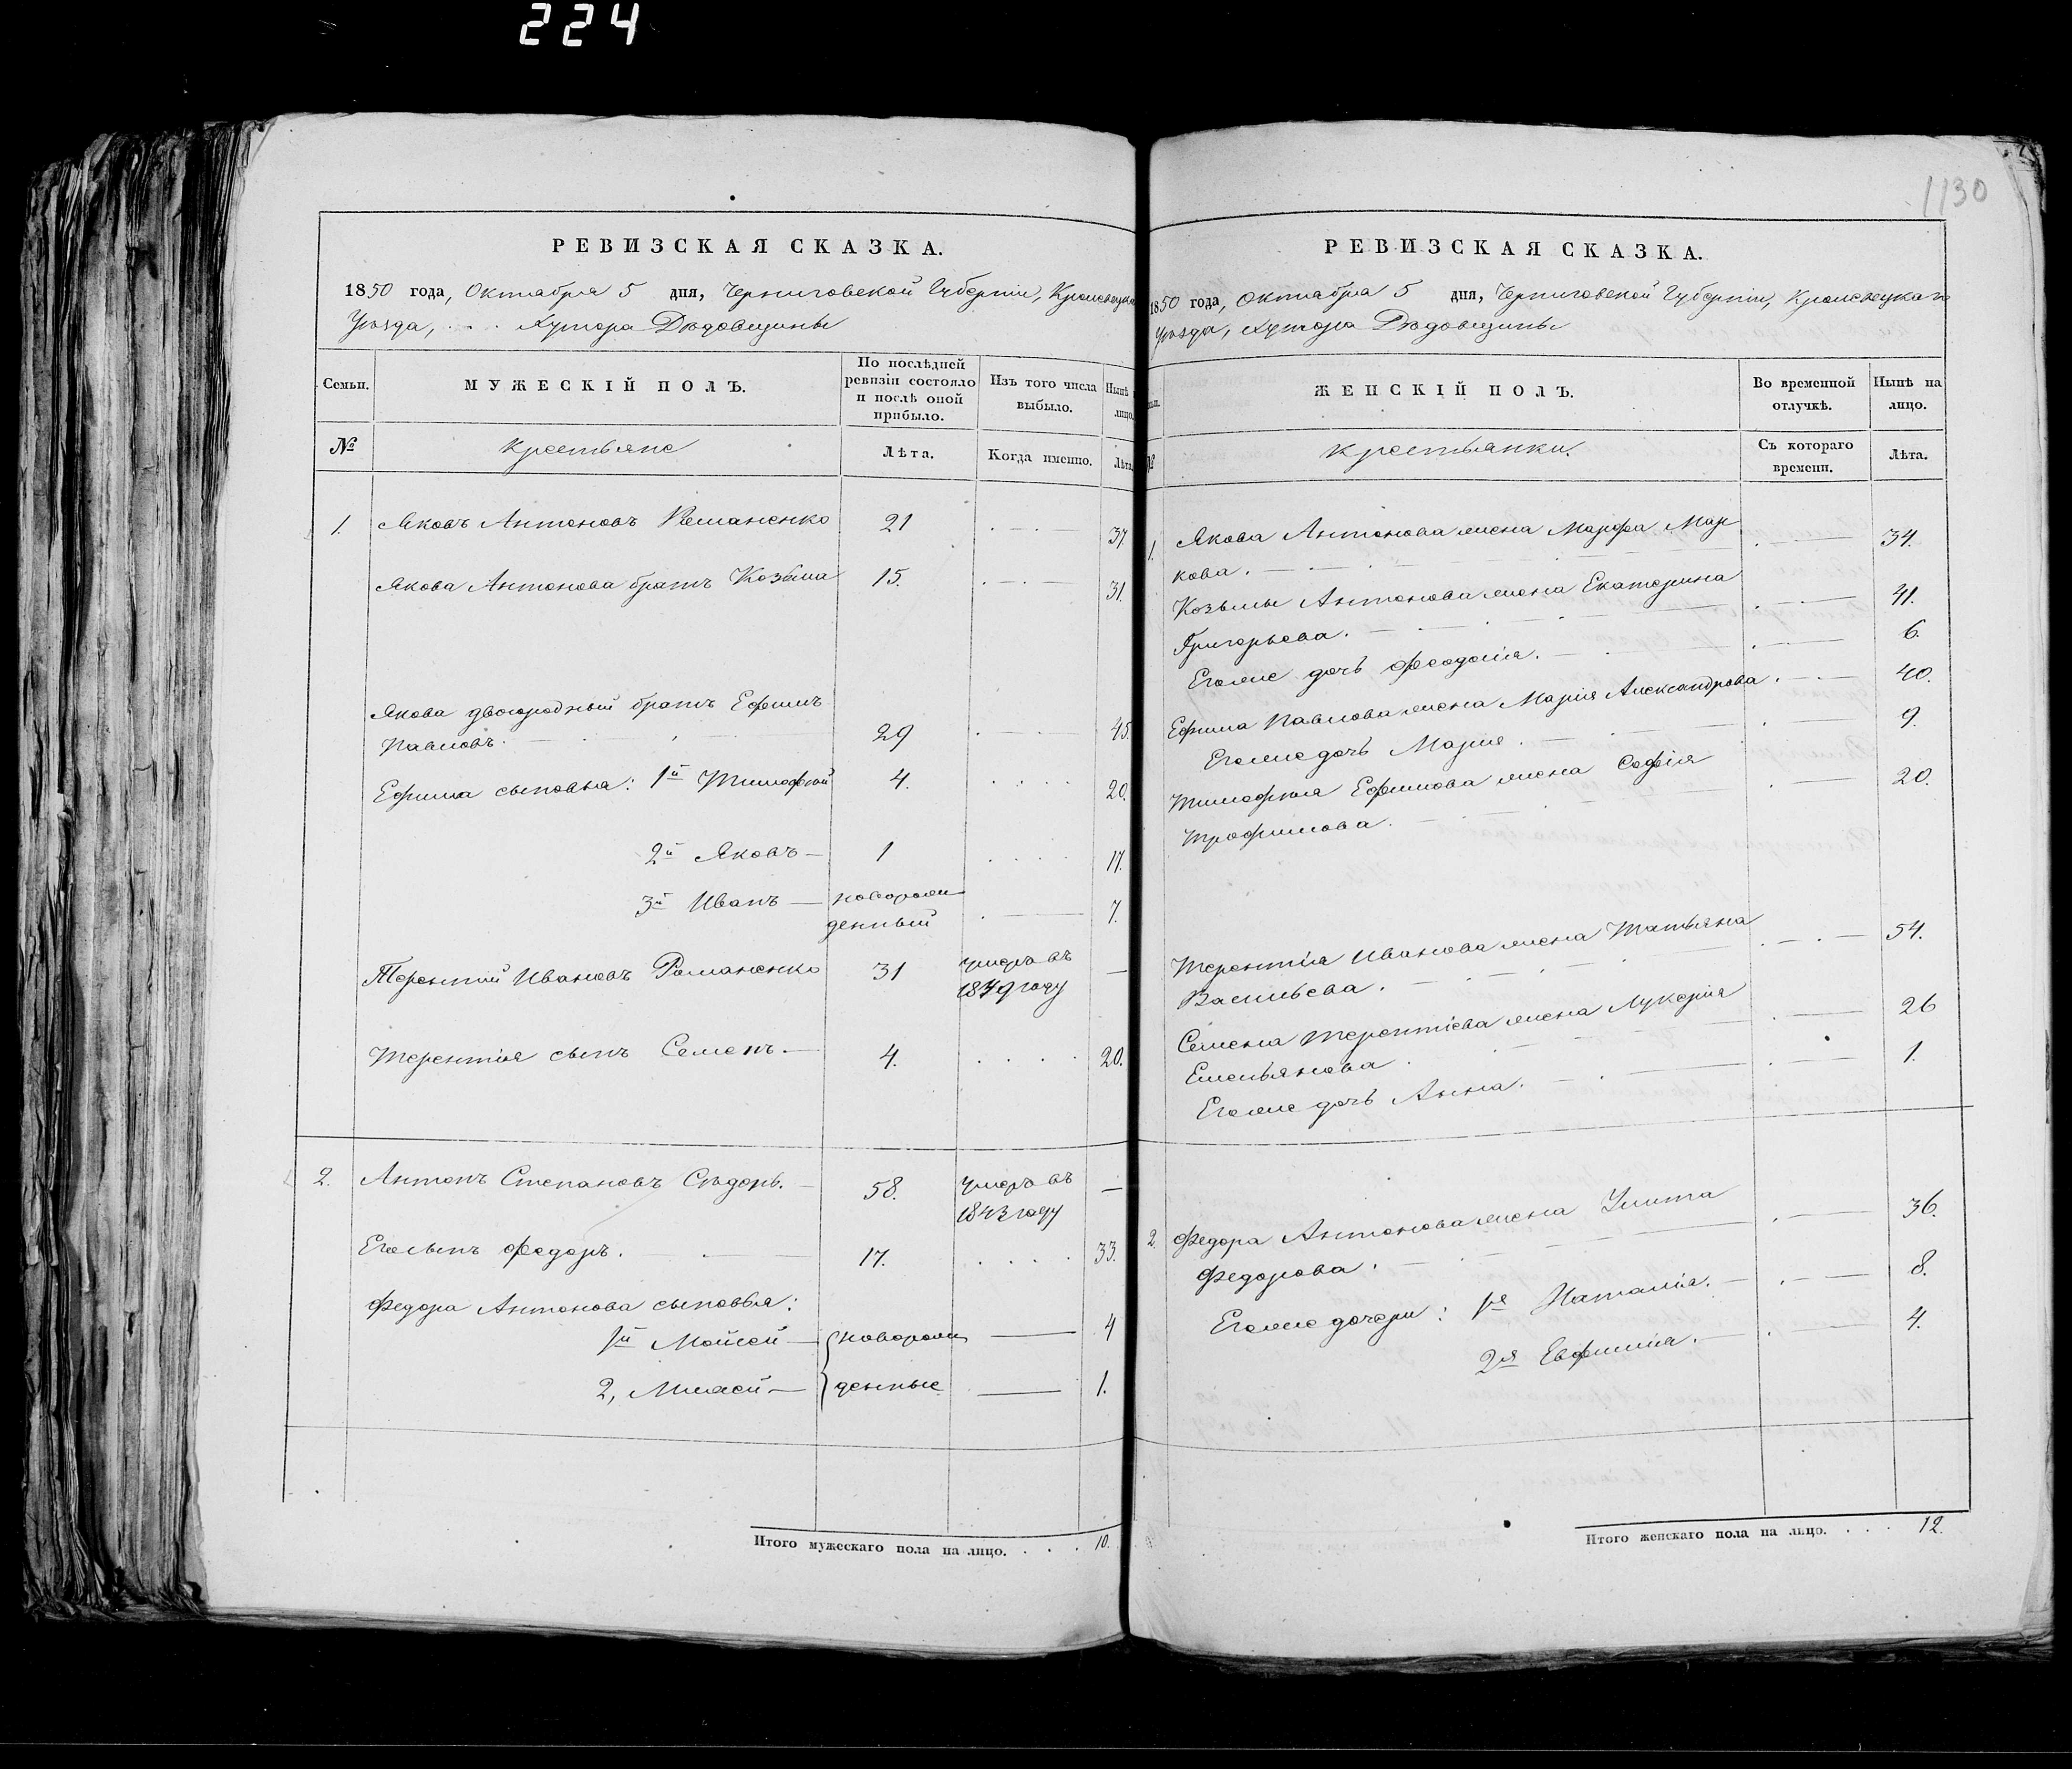 224
1130
РЕВИЗСКАЯ СКАЗКА.
1850 года, Октября 5 дня, Черниговской Губерніи,
Уѣзда, . . . Хутора Дѣдовщины
Семьи.
МУЖЕСКІЙ ПОЛЪ.
По послѣдней ревизіи состояло и послѣ оной прибыло.
Изъ того числа выбыло.
Нынѣ
лицо.
№
крестьяне
Лѣта.
Когда именно.
Лѣта
1. Яковъ Антоновъ Романенко 21 37
Якова Антонова братъ Козьма 15. 31.
Якова двоюродный братъ Ефимъ
Павловъ. 29 45.
Ефима сыновья: 1й Тимофей 4. 20.
2й Яковъ — 1 17.
3й Иванъ — новорож
денный 7.
Терентий Ивановъ Романенко 31 умеръ въ —
1849 году
Терентія сынъ Семенъ. — 4. 20.
2. Антонъ Степановъ Сѣдонъ. 58. умеръ въ —
1843 году
Его сынъ Федоръ. 17. 33.
Федора Антонова сыновья:
1й Мойсей — новорож — 4
2, — денные — 1.
Итого мужескаго пола на лицо. . . . 10.
РЕВИЗСКАЯ СКАЗКА.
1850 года, Октября 5 дня, Черниговской Губерніи, Кролевецкаго
Уѣзда, Хутора Дѣдовщины
ЖЕНСКІЙ ПОЛЪ.
Во временной отлучкѣ.
Нынѣ на лицо.
№
крестьянки.
Съ котораго времени.
Лѣта.
1. Якова Антонова жена Марфа Мар
кова. 34.
Козьмы Антонова жена Екатерина
Григорьева. 41.
Его же дочь Феодосія. 6.
Ефима Павлова жена Марія Александрова. 40.
Его же дочь Марія. 9.
Тимофѣя Ефимова жена Софія
Трофимова. 20.
Терентія Иванова жена Татьяна
Васильева. 54.
Семена Терентіева жена Лукерія
Емельянова 26
Его же дочь Анна. 1.
2. Федора Антонова жена Улита
Федорова. 36.
Его же дочери: 1я Наталія. 8.
2я Евфимія. 4.
Итого женскаго пола на лицо. . . . 12.